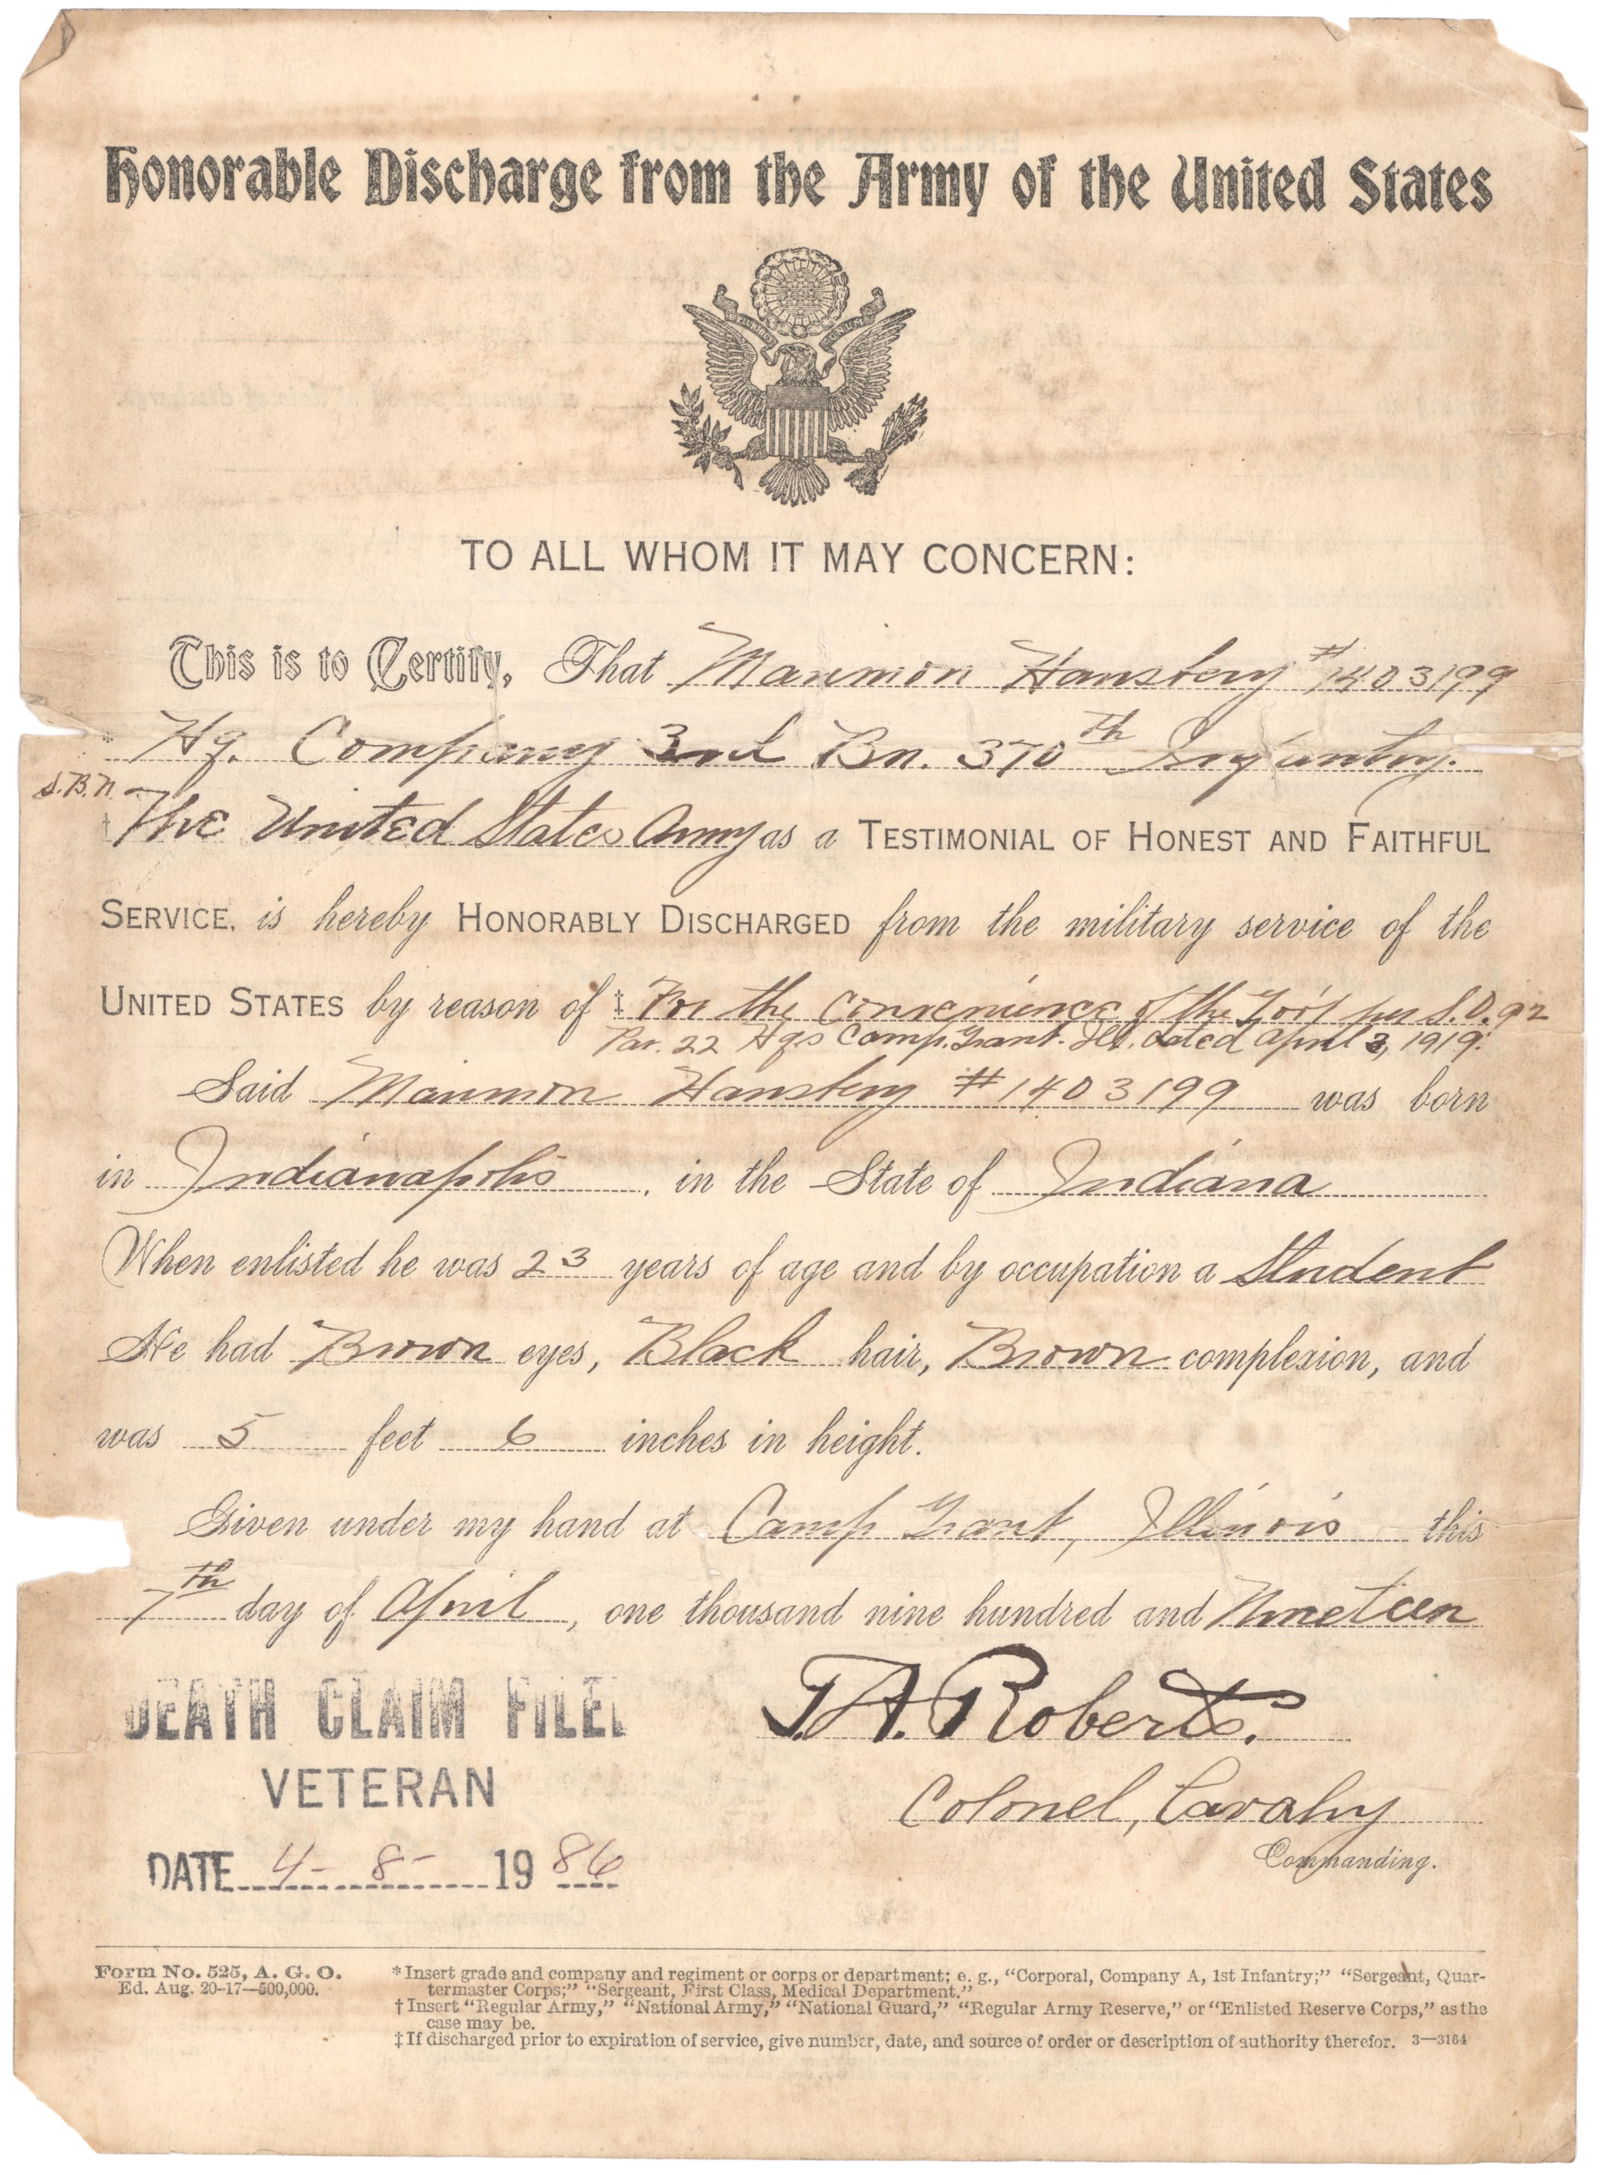 Honorable Discharge from the Army of the United States
TO ALL WHOM IT MAY CONCERN:
This is to Certify, That Maximon Hansbery #1403199
* Hq. Company 3rd Bn. 370th Infantry.
† The United States Army as a TESTIMONIAL OF HONEST AND FAITHFUL
SERVICE, is hereby HONORABLY DISCHARGED from the military service of the
UNITED STATES by reason of ‡ For the Convenience of the Gov't per S.O. 92
Par. 22 Hqs Camp. Grant. Ill. dated April 3, 1919.
Said Maximon Hansbery #1403199 was born
in Indianapolis, in the State of Indiana
When enlisted he was 23 years of age and by occupation a Student
He had Brown eyes, Black hair, Brown complexion, and
was 5 feet 6 inches in height.
Given under my hand at Camp Grant, Illinois this
7th day of April, one thousand nine hundred and Nineteen
T.A. Roberts.
Colonel, Cavalry
Commanding.
DEATH CLAIM FILED
VETERAN
DATE 4-8- 1986
Form No. 525, A. G. O.
Ed. Aug. 20-17—500,000.
* Insert grade and company and regiment or corps or department; e. g., “Corporal, Company A, 1st Infantry;” “Sergeant, Quar-
termaster Corps;” “Sergeant, First Class, Medical Department.”
† Insert “Regular Army,” “National Army,” “National Guard,” “Regular Army Reserve,” or “Enlisted Reserve Corps,” as the
case may be.
‡ If discharged prior to expiration of service, give number, date, and source of order or description of authority therefor. 3—3164